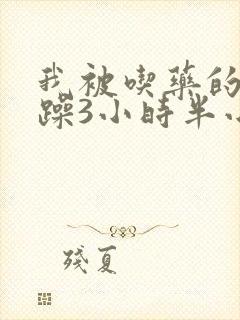 我被喫藥的
躁3小時半
殘夏